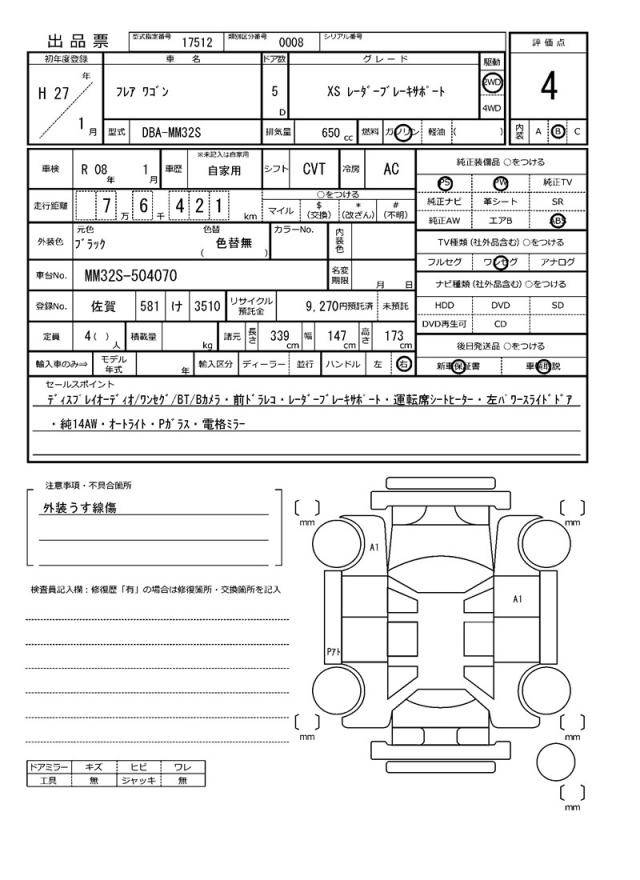 出品票 型式指定番号 17512 類別区分番号 0008 シリアル番号
評価点
4
内装 A B C
初年度登録 車名 ドア数 グレード 駆動
H 27 年 1 月
フレア ワゴン 5 D XS レーダーブレーキサポート 2WD 4WD
型式 DBA-MM32S 排気量 650 cc 燃料 ガソリン 軽油 ( )
車検 R 08 年 1 月 車歴 ※未記入は自家用 自家用 シフト CVT 冷房 AC
走行距離 7 万 6 千 4 2 1 km ○をつける
マイル $ (交換) * (改ざん) # (不明)
外装色 元色 ブラック 色替 ( 色替無 ) カラーNo. 内装色
車台No. MM32S-504070 名変期限 月 日
登録No. 佐賀 581 け 3510 リサイクル預託金 9,270円預託済 未預託
定員 4( ) 人 積載量 kg 諸元 長さ 339 cm 幅 147 cm 高さ 173 cm
輸入車のみ⇒ モデル年式 年 輸入区分 ディーラー 並行 ハンドル 左 右
純正装備品 ○をつける
PS PW 純正TV
純正ナビ 革シート SR
純正AW エアB ABS
TV種類 (社外品含む) ○をつける
フルセグ ワンセグ アナログ
ナビ種類 (社外品含む) ○をつける
HDD DVD SD
DVD再生可 CD
後日発送品 ○をつける
新車保証書 車輌取説
セールスポイント
ディスプレイオーディオ/ワンセグ/BT/Bカメラ・前ドラレコ・レーダーブレーキサポート・運転席シートヒーター・左パワースライドドア
・純14AW・オートライト・Pガラス・電格ミラー
注意事項・不具合箇所
外装うす線傷
検査員記入欄：修復歴「有」の場合は修復箇所・交換箇所を記入
[ ] mm
[ ] mm
A1
A1
Pアト
[ ] mm
[ ] mm
[ ] mm
ドアミラー キズ ヒビ ワレ
工具 無 ジャッキ 無